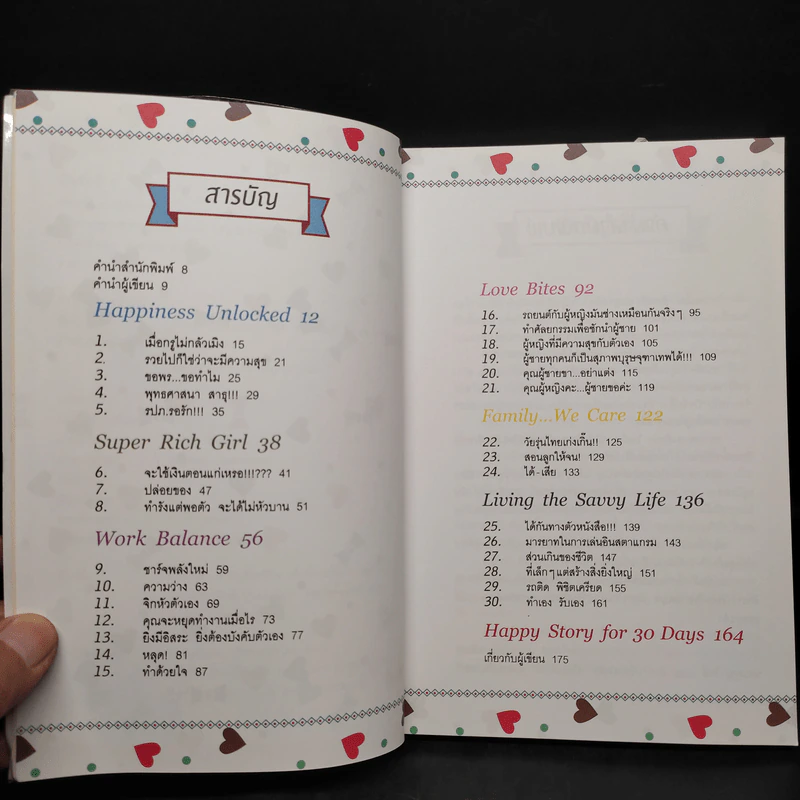 สารบัญ
คำนำสำนักพิมพ์ 8
คำนำผู้เขียน 9
Happiness Unlocked 12
1. เมื่อกรูไม่กลัวเมิง 15
2. รวยไปก็ใช่ว่าจะมีความสุข 21
3. ขอพร...ขอทำไม 25
4. พุทธศาสนา สาธุ!!! 29
5. รปภ.รอรัก!!! 35
Super Rich Girl 38
6. จะใช้เงินตอนแก่เหรอ!!!??? 41
7. ปล่อยของ 47
8. ทำรังแต่พอตัว จะได้ไม่หัวบาน 51
Work Balance 56
9. ชาร์จพลังใหม่ 59
10. ความว่าง 63
11. จิกหัวตัวเอง 69
12. คุณจะหยุดทำงานเมื่อไร 73
13. ยิ่งมีอิสระ ยิ่งต้องบังคับตัวเอง 77
14. หลุด! 81
15. ทำด้วยใจ 87
Love Bites 92
16. รถยนต์กับผู้หญิงมันช่างเหมือนกันจริงๆ 95
17. ทำศัลยกรรมเพื่อชักนำผู้ชาย 101
18. ผู้หญิงที่มีความสุขกับตัวเอง 105
19. ผู้ชายทุกคนก็เป็นสุภาพบุรุษจุฑาเทพได้!!! 109
20. คุณผู้ชายขา...อย่าแต่ง 115
21. คุณผู้หญิงคะ...ผู้ชายขอค่ะ 119
Family...We Care 122
22. วัยรุ่นไทยเก่งเกิ๊น!! 125
23. สอนลูกให้จน! 129
24. ได้-เสีย 133
Living the Savvy Life 136
25. ได้กันทางตัวหนังสือ!!! 139
26. มารยาทในการเล่นอินสตาแกรม 143
27. ส่วนเกินของชีวิต 147
28. ที่เล็กๆ แต่สร้างสิ่งยิ่งใหญ่ 151
29. รถติด พิชิตเครียด 155
30. ทำเอง รับเอง 161
Happy Story for 30 Days 164
เกี่ยวกับผู้เขียน 175